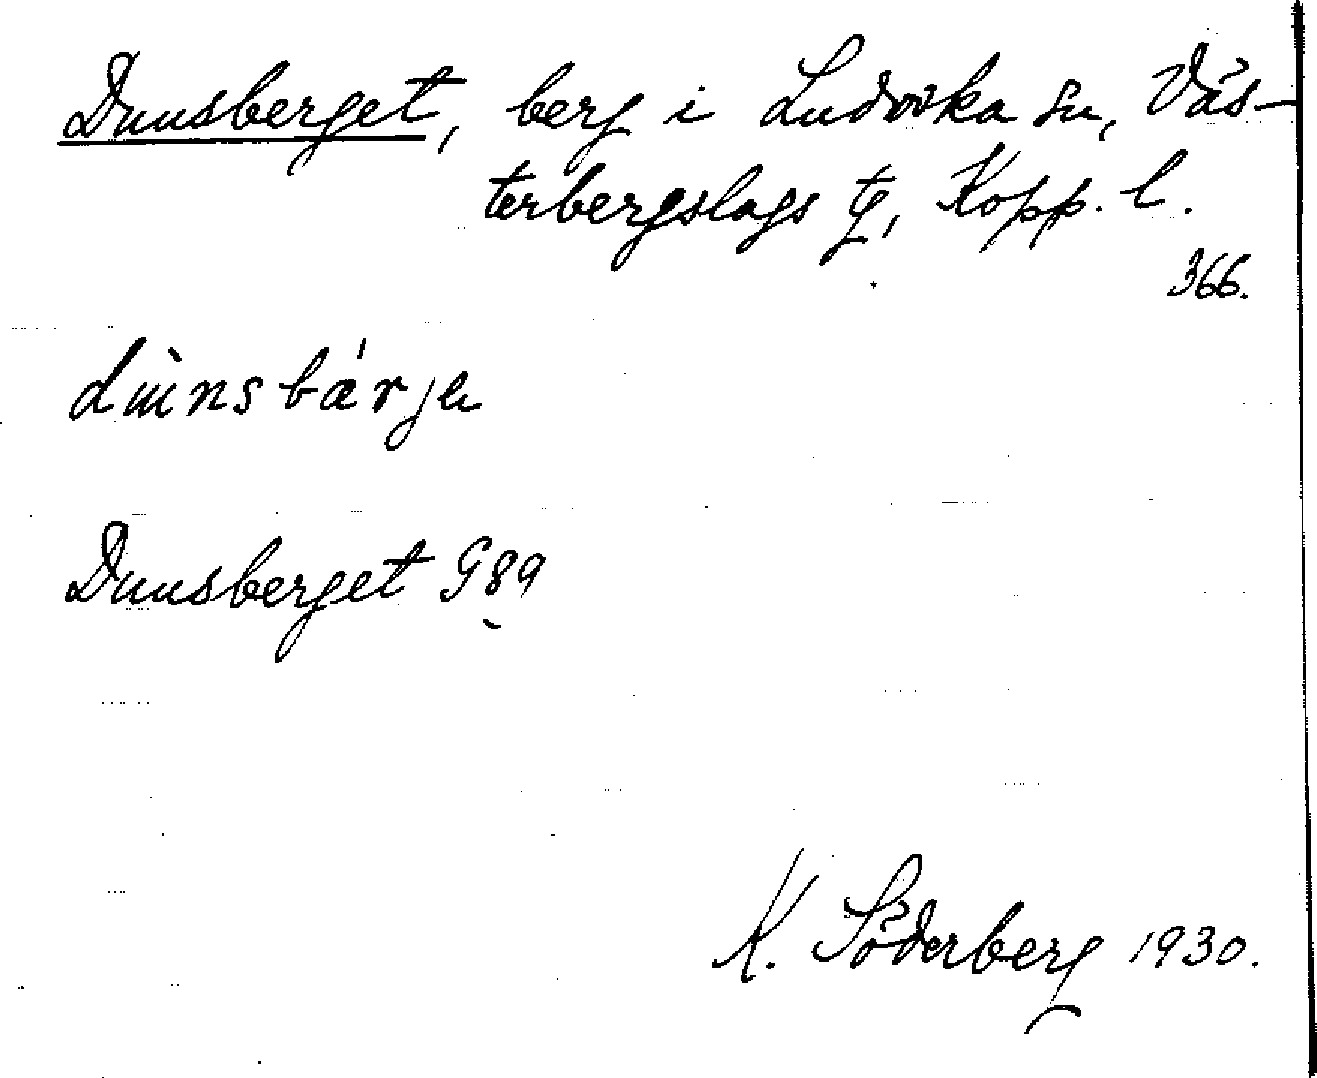 Dunsberget, berg i Ludvika sn, Väs-
terbergslags tg, Kopp. l.
366.
Dunsberget G89
K. Söderberg 1930.